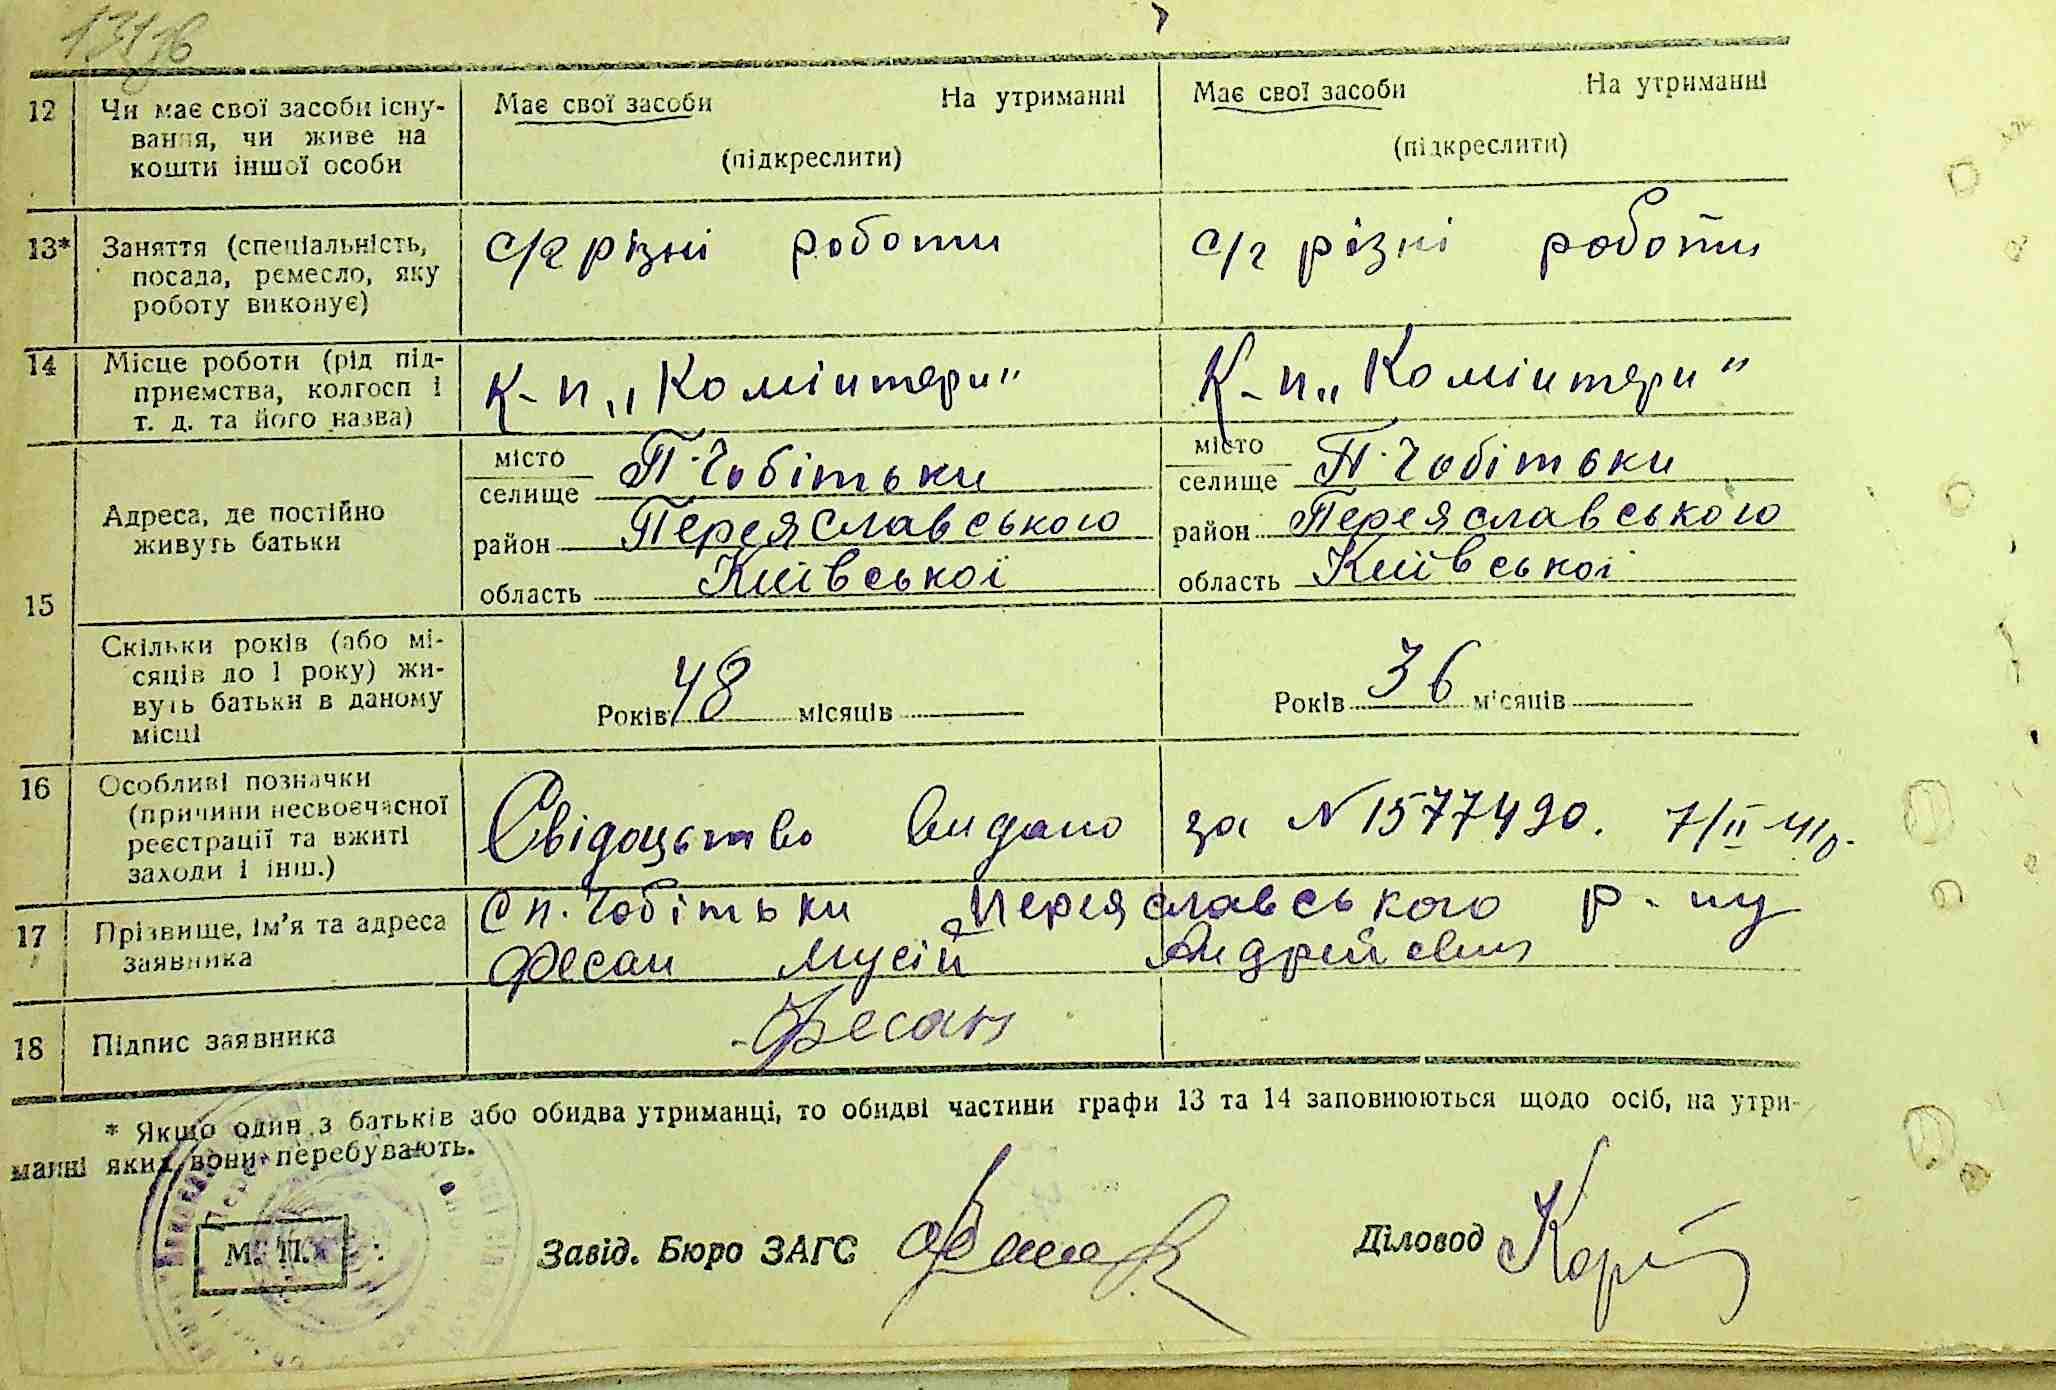 13116
12 Чи має свої засоби існу-
вання, чи живе на
кошти іншої особи
Має свої засоби На утриманні
(підкреслити)
Має свої засоби На утриманні
(підкреслити)
13* Заняття (спеціальність,
посада, ремесло, яку
роботу виконує)
с/г різні роботи
с/г різні роботи
14 Місце роботи (рід під-
приємства, колгосп і
т. д. та його назва)
К-п „Комінтерн"
К-п „Комінтерн"
15 Адреса, де постійно
живуть батьки
місто
селище П.Чобітьки
район Переяславського
область Київської
місто
селище П.Чобітьки
район Переяславського
область Київської
Скільки років (або мі-
сяців до 1 року) жи-
вуть батьки в даному
місці
Років 48 місяців
Років 36 місяців
16 Особливі позначки
(причини несвоєчасної
реєстрації та вжиті
заходи і інш.)
Свідоцьтво видано за N 1577490. 7/II 41р.
17 Прізвище, ім'я та адреса
заявника
С п. Чобітьки Переяславського р-ну
Фесан Мусій Андрійович
18 Підпис заявника
Фесан
* Якщо один з батьків або обидва утриманці, то обидві частини графи 13 та 14 заповнюються щодо осіб, на утри-
манні яких вони перебувають.
М. П.
Завід. Бюро ЗАГС
Діловод